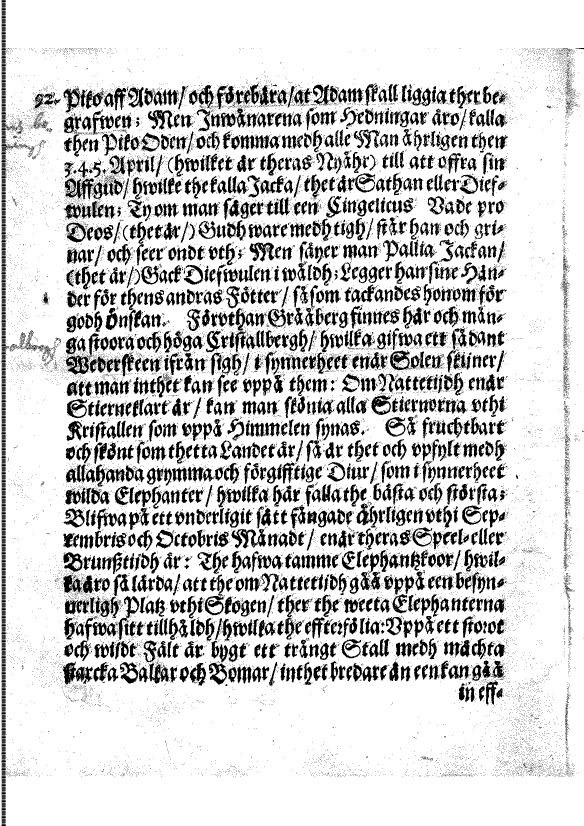 92. Piko aff Adam/ och förebära/ at Adam skall liggia ther be-
grafwen; Men Inwånarena som Hedningar äro/ kalla
then Piko Oden/ och komma medh alle Man åhrligen then
3.4.5. April/ (hwilket är theras Nyåhr) till att offra sin
Affgud/ hwilke the kalla Jacka/ thet är Sathan eller Dief-
wulen; Ty om man säger till een Cingelicus Vade pro
Deos/ (thet är/) Gudh ware medh tigh/ står han och gri-
nar/ och seer ondt vth; Men säyer man Pallia Jackan/
(thet är/) Gack Diefwulen i wåldh; Legger han sine Hän-
der för thens andras Fötter/ såsom tackandes honom för
godh önskan. Förothan Grååberg finnes här och mån-
ga stoora och höga Cristallbergh/ hwilka gifwa ett sådant
Wederskeen ifrån sigh/ i synnerheet enär Solen skijner/
att man inthet kan see vppå them: Om Nattetijdh enär
Stierneklart är/ kan man skönia alla Stiernorna vthi
Kristallen som vppå Himmelen synas. Så fruchtbart
och skönt som thetta Landet är/ så är thet och vpfylt medh
allahanda grymma och förgifftige Diur/ som i synnerheet
wilda Elephanter/ hwilka här falla the bästa och största;
Blifwa på ett vnderligit sätt fångade åhrligen vthi Sep-
tembris och Octobris Månadt/ enär theras Speel- eller
Brunßtijdh är: The hafwa tamme Elephantzkoor/ hwil-
ka äro så lärda/ att the om Nattetijdh gåå vppå een besyn-
nerligh Platz vthi Skogen/ ther the weeta Elephanterna
hafwa sitt tillhåldh/ hwilka the effterfölia: Vppå ett stoort
och wijdt Fält är bygt ett trångt Stall medh mächta
starcka Balkar och Bomar/ inthet bredare än een kan gåå
in eff-